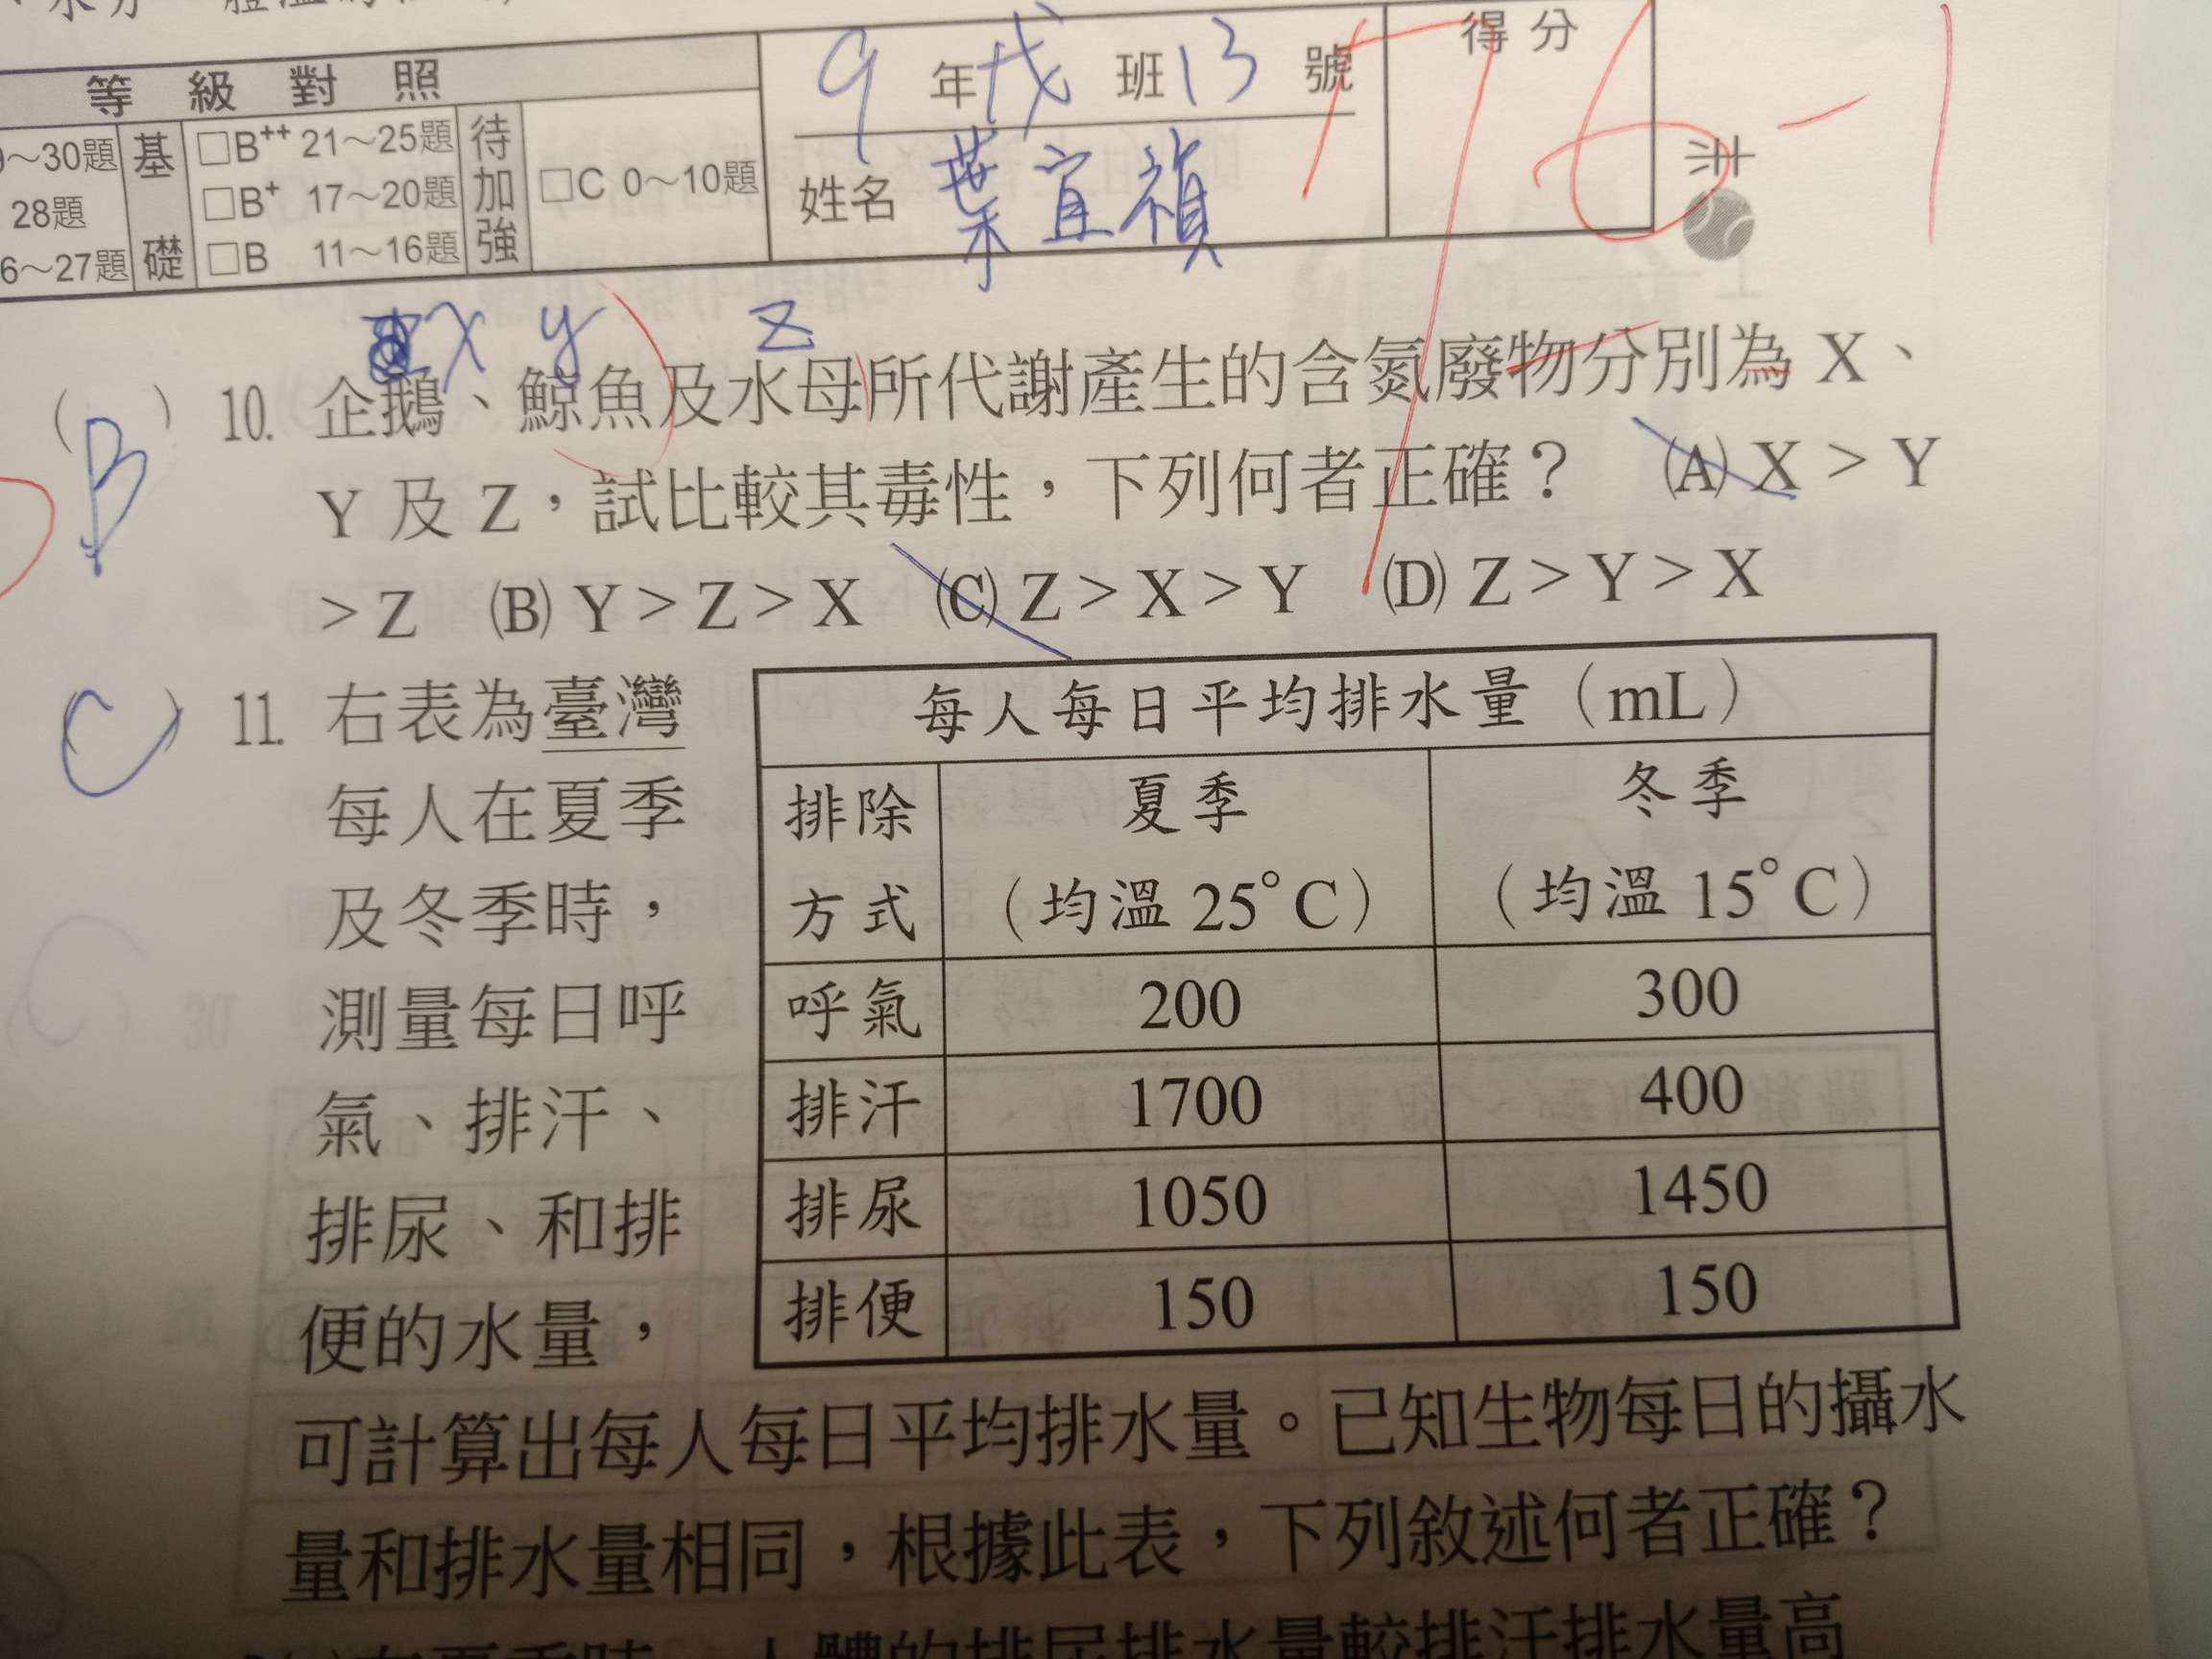 等級對照
9年戊班13號
得分
～30題
基礎
□B⁺⁺ 21～25題
待加強
□C 0～10題
28題
□B⁺ 17～20題
6～27題
□B 11～16題
姓名 葉宜禎
76-1
X y z
(B) 10. 企鵝、鯨魚及水母所代謝產生的含氮廢物分別為 X、
Y 及 Z，試比較其毒性，下列何者正確？ (A) X > Y
> Z (B) Y > Z > X (C) Z > X > Y (D) Z > Y > X
(C) 11. 右表為臺灣
每人在夏季
及冬季時，
測量每日呼
氣、排汗、
排尿、和排
便的水量，
每人每日平均排水量（mL）
排除方式 夏季（均溫 25°C） 冬季（均溫 15°C）
呼氣 200 300
排汗 1700 400
排尿 1050 1450
排便 150 150
可計算出每人每日平均排水量。已知生物每日的攝水
量和排水量相同，根據此表，下列敘述何者正確？
在夏季時，人體的排尿排水量較排汗排水量高